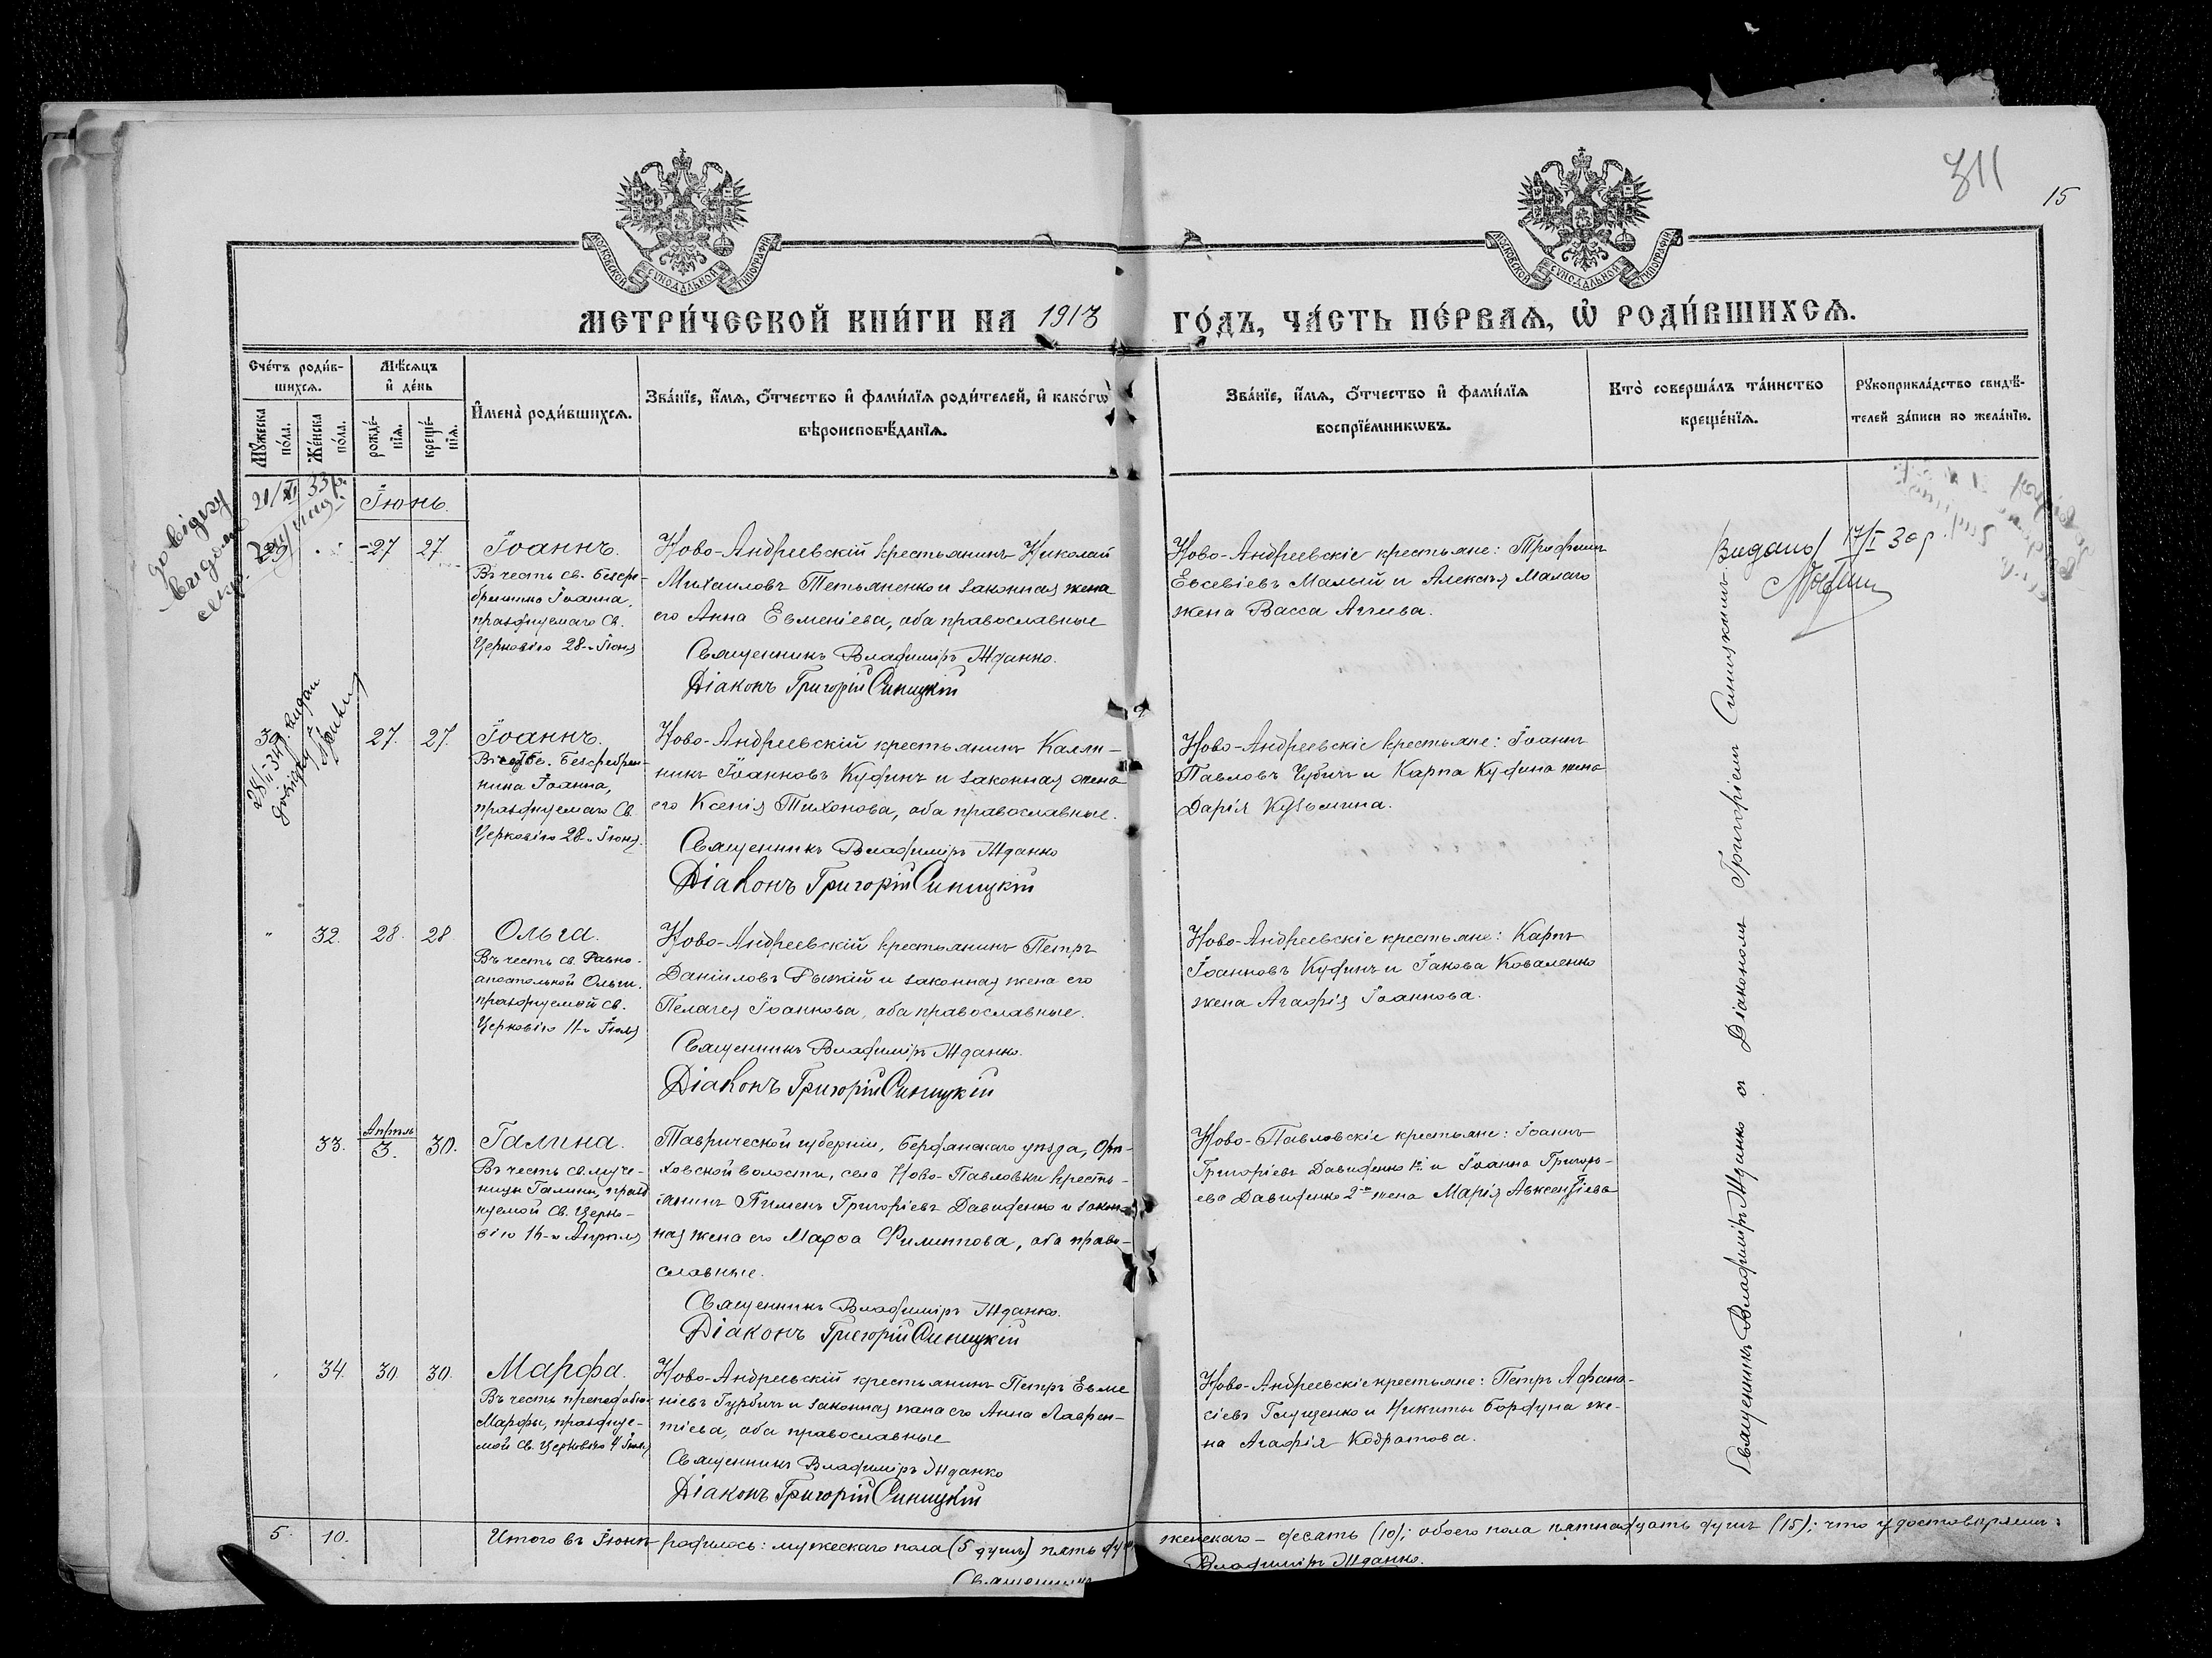 311
15
МОСКОВСКОЙ СѴНОДАЛЬНОЙ ТИПОГРАФІИ
МОСКОВСКОЙ СѴНОДАЛЬНОЙ ТИПОГРАФІИ
МЕТРИ́ЧЕСКОЙ КНИ́ГИ НА 1913 ГО́ДЪ, ЧА́СТЬ ПЕ́РВАѦ, Ѡ҆ РОДИ́ВШИХСѦ.
Сче́тъ роди́в-
шихсѧ.
Мѣ́сѧцъ
и҆ де́нь
Мꙋ́жеска
по́ла.
Же́нска
по́ла.
рожде́-
нїѧ.
креще́-
нїѧ.
И҆мена̀ роди́вшихсѧ.
Зва́нїе, и҆́мѧ, ѻ҆́тчество и҆ фами́лїѧ роди́телей, и҆ како́гѡ
вѣроисповѣ́данїѧ.
Зва́нїе, и҆́мѧ, ѻ҆́тчество и҆ фами́лїѧ
воспрїе́мникѡвъ.
Кто̀ соверша́лъ та́инство
креще́нїѧ.
Рꙋкоприкла́дство свидѣ́-
телей за́писи по жела́нїю.
довідку
видано
21/XI 33 р.
Іюнь.
29 27 27
Іоаннъ.
Въ честь св. безсре-
бренника Іоанна,
празднуемаго Св.
Церковію 28-го Іюня
Ново-Андреевскій крестьянинъ Николай
Михаиловъ Тетьяненко и законная жена
его Анна Евменіева, оба православные
Священникъ Владиміръ Жданко.
Діаконъ Григорій Синицкій
Ново-Андреевскіе крестьяне: Трофимъ
Евсевіевъ Малый и Алексѣя Малаго
жена Васса Аггеева.
Видано 17/I 30 р
30 27. 27.
28/II 34 р. видан
довідку
Іоаннъ.
Въ честь Св. безсребрен-
ника Іоанна,
празднуемаго Св.
Церковію 28-го Іюня.
Ново-Андреевскій крестьянинъ Калли-
никъ Іоанновъ Кудинъ и законная жена
его Ксенія Тихонова, оба православные.
Священникъ Владиміръ Жданко
Діаконъ Григорій Синицкій
Ново-Андреевскіе крестьяне: Іоаннъ
Павловъ Чубичъ и Карпа Кудина жена
Дарія Кузьмина.
" 32. 28. 28
Ольга.
Въ честь св. Равно-
апостольной Ольги,
празднуемой св.
Церковію 11-го Іюля
Ново-Андреевскій крестьянинъ Петръ
Даніиловъ Рыжій и законная жена его
Пелагея Іоаннова, оба православные.
Священникъ Владиміръ Жданко.
Діаконъ Григорій Синицкій
Ново-Андреевскіе крестьяне: Карпъ
Іоанновъ Кудинъ и Іакова Коваленко
жена Агафія Іоаннова.
33. Апрѣль 3. 30.
Галина.
Въ честь св. муче-
ницы Галины, празд
нуемой Св. Церко-
вію 16-го Апрѣля
Таврической губерніи, Бердянскаго уѣзда, Орѣ-
ховской волости, села Ново-Павловки кресть-
янинъ Пименъ Григоріевъ Давиденко и закон-
ная жена его Марѳа Филиппова, оба право-
славные.
Священникъ Владиміръ Жданко.
Діаконъ Григорій Синицкій
Ново-Павловскіе крестьяне: Іоаннъ
Григоріевъ Давиденко 1й и Іоанна Григорь-
ева Давиденко 2го жена Марія Авксентіева
34. 30 30.
Марфа.
Въ честь преподобной
Марфы, празднуе-
мой Св. Церковію 4 Іюля
Ново-Андреевскій крестьянинъ Петръ Евме
ніевъ Гурбичъ и законная жена его Анна Лаврен-
тіева, оба православные
Священникъ Владиміръ Жданко
Діаконъ Григорій Синицкій
Ново-Андреевскіе крестьяне: Петръ Афана-
сіевъ Глущенко и Никиты Бордуна же-
на Агафія Кодратова.
Священникъ Владиміръ Жданко съ Діакономъ Григоріемъ Синицкимъ
5. 10. Итого въ Іюнѣ родилось: мужескаго пола (5 душъ) пять душ женскаго – десять (10); обоего пола пятнадцать душъ (15); что удостовѣряемъ:
Священникъ Владиміръ Жданко.